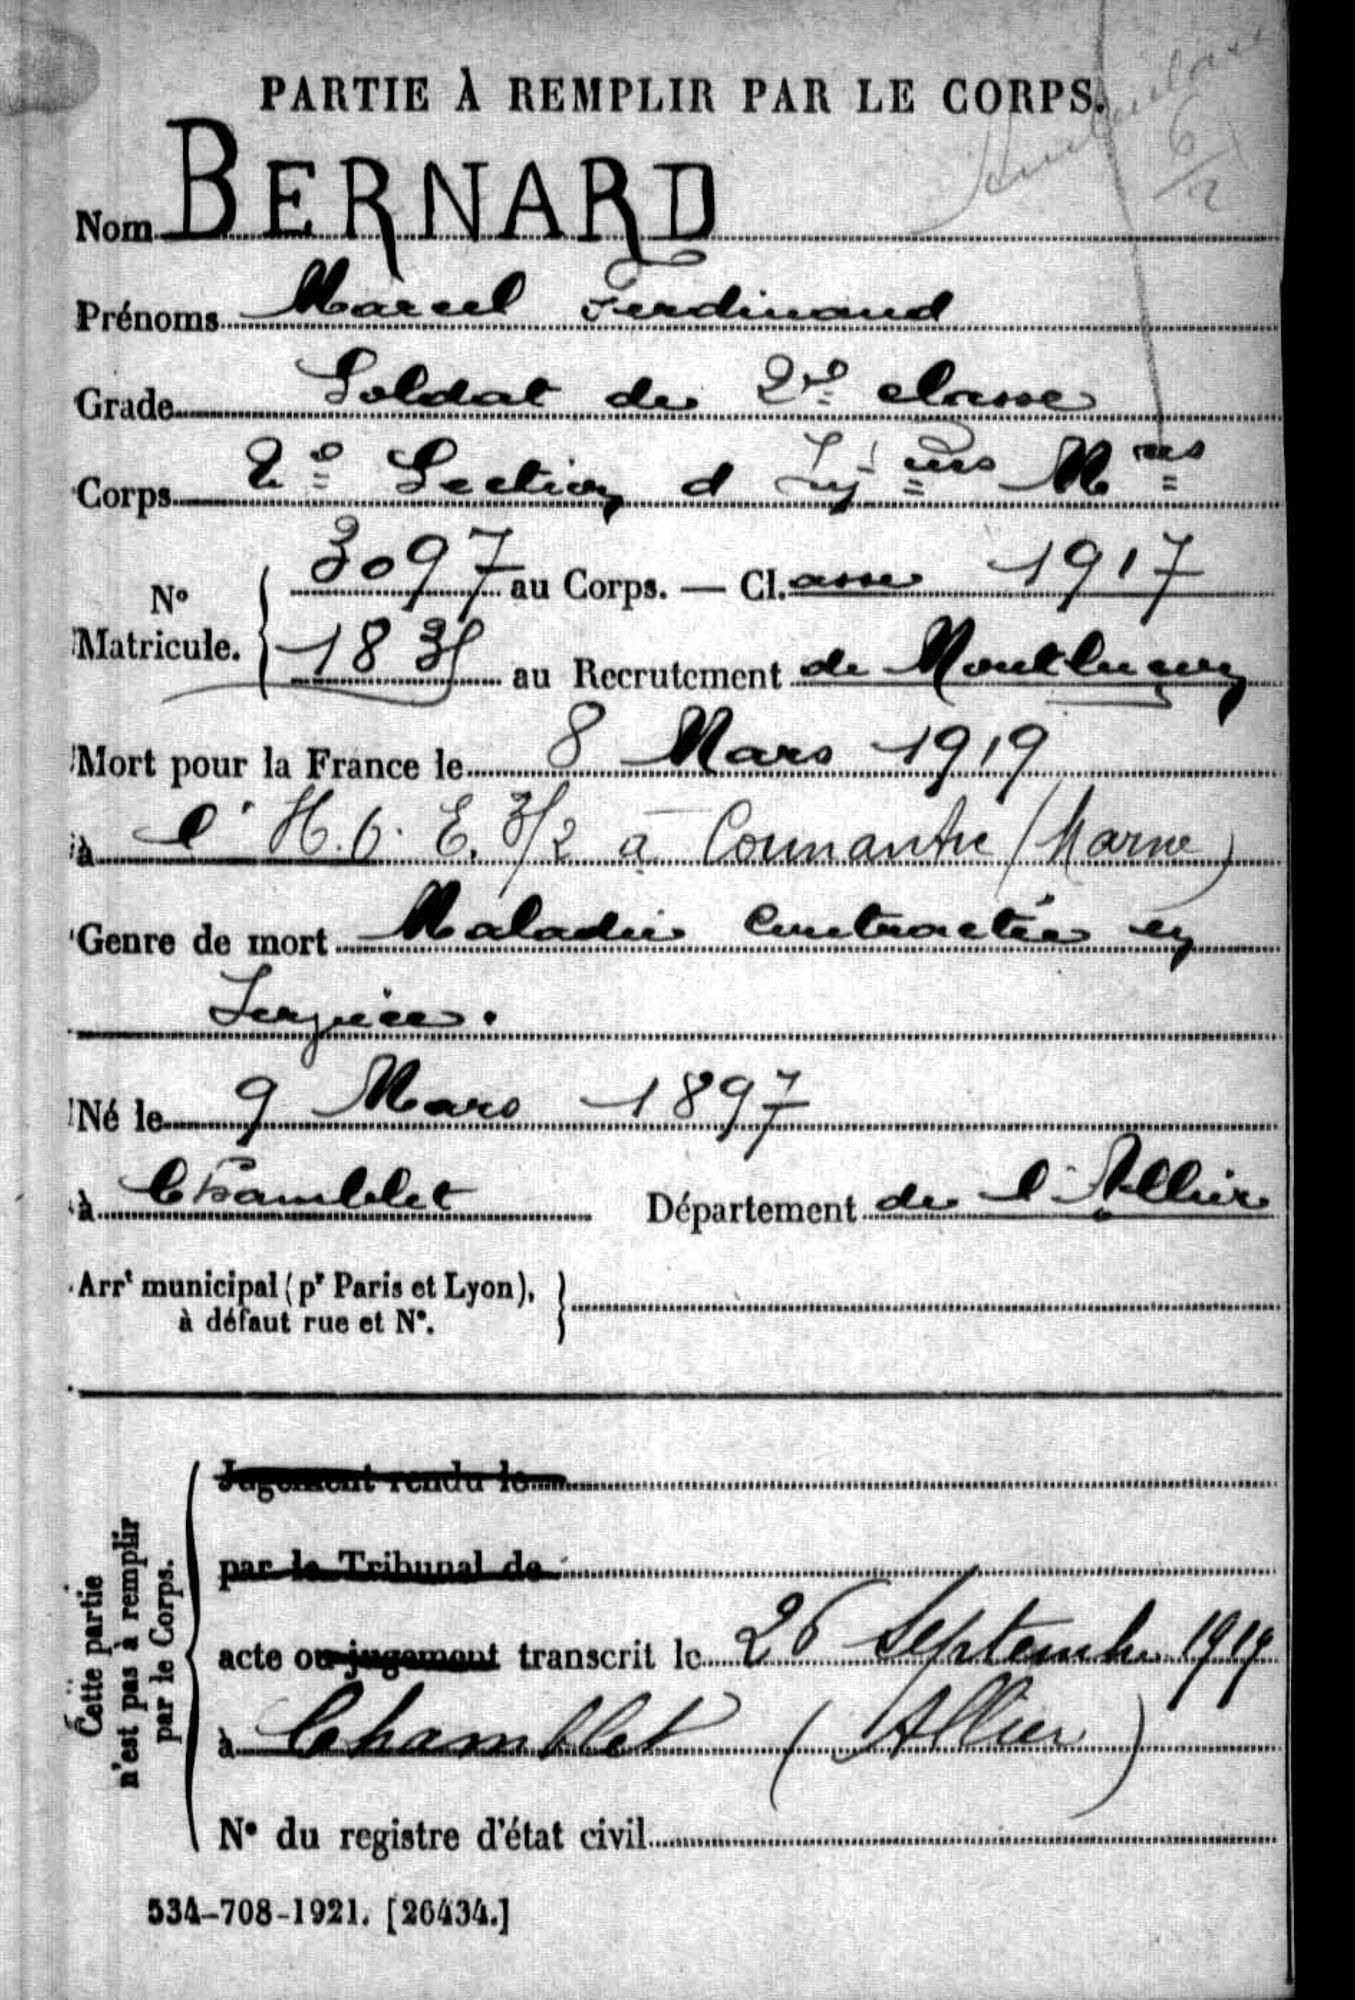 PARTIE À REMPLIR PAR LE CORPS.
6/2
Nom BERNARD
Prénoms Marcel Ferdinand
Grade Soldat de 2e classe
Corps 2e Section d'Infirmiers Mres
No Matricule. 3097 au Corps. — Cl.asse 1917
183 au Recrutement de Montluçon
Mort pour la France le 8 Mars 1919
à l'H.O.E. 3/2 à Connantre (Marne)
Genre de mort Maladie contractée en
Service.
Né le 9 Mars 1897
à Chamblet Département de l'Allier
Arrt municipal (pr Paris et Lyon),
à défaut rue et N°.
Cette partie
n'est pas à remplir
par le Corps.
Jugement rendu le
par le Tribunal de
acte ou jugement transcrit le 26 Septembre 1919
à Chamblet (Allier)
N° du registre d'état civil
534-708-1921. [26434.]